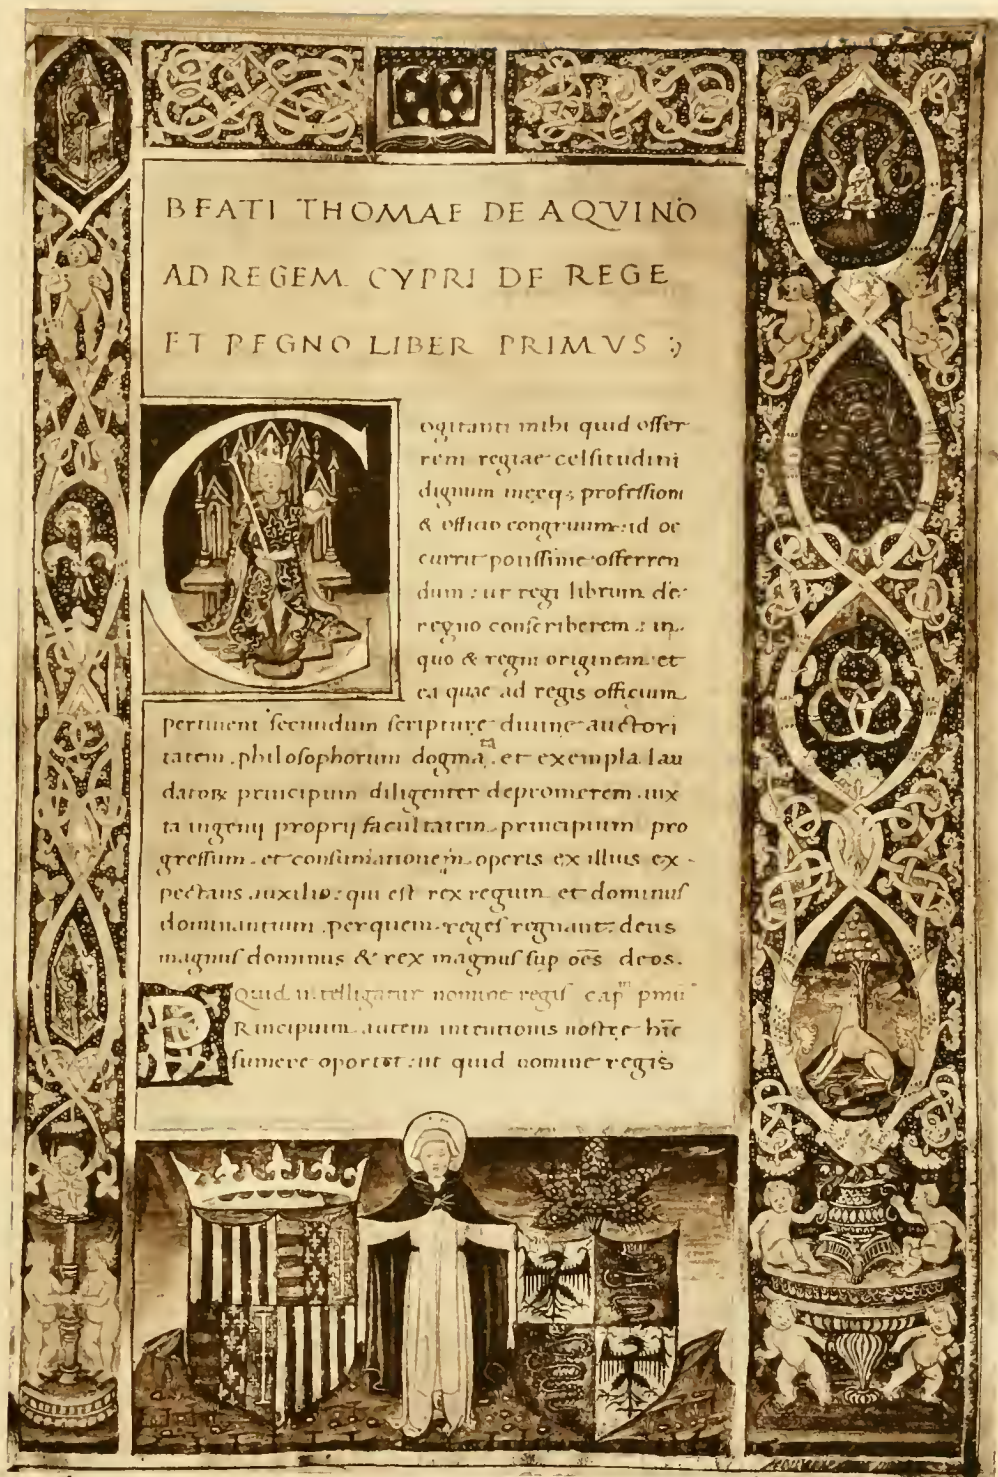 BEATI THOMAE DE AQVINO
AD REGEM CYPRI DE REGE
ET REGNO LIBER PRIMVS :,
Cogitanti mihi quid offer
rem regiae celsitudini
dignum meeq; professioni
& officio congruum: id oc
currit potissime offerren
dum: ut regi librum de
regno conscriberem: in
quo & regni originem et
ea quae ad regis officium
pertinent secundum scripture diuine auctori
tatem . philosophorum dogmata . et exempla lau
datoꝝ principum diligenter depromerem . iux
ta ingenij proprij facultatem . principium pro
gressum . et consumationem operis ex illius ex
pectans auxilio: qui est rex regum et dominus
dominantium . per quem reges regnant: deus
magnus dominus & rex magnus sup oēs deos.
Quid intelligatur nomine regis cap̄ pmū
PRincipium autem intentionis nostre hīc
sumere oportet: ut quid nomine regis